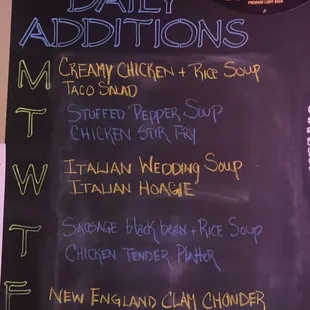 DAILY
ADDITIONS
PREMIUM LIGHT BEER
M CREAMY CHICKEN + RICE SOUP
TACO SALAD
T STUFFED PEPPER SOUP
CHICKEN STIR FRY
W ITALIAN WEDDING SOUP
ITALIAN HOAGIE
T SAUSAGE black bean + RICE SOUP
CHICKEN TENDER PLATTER
F NEW ENGLAND CLAM CHOWDER